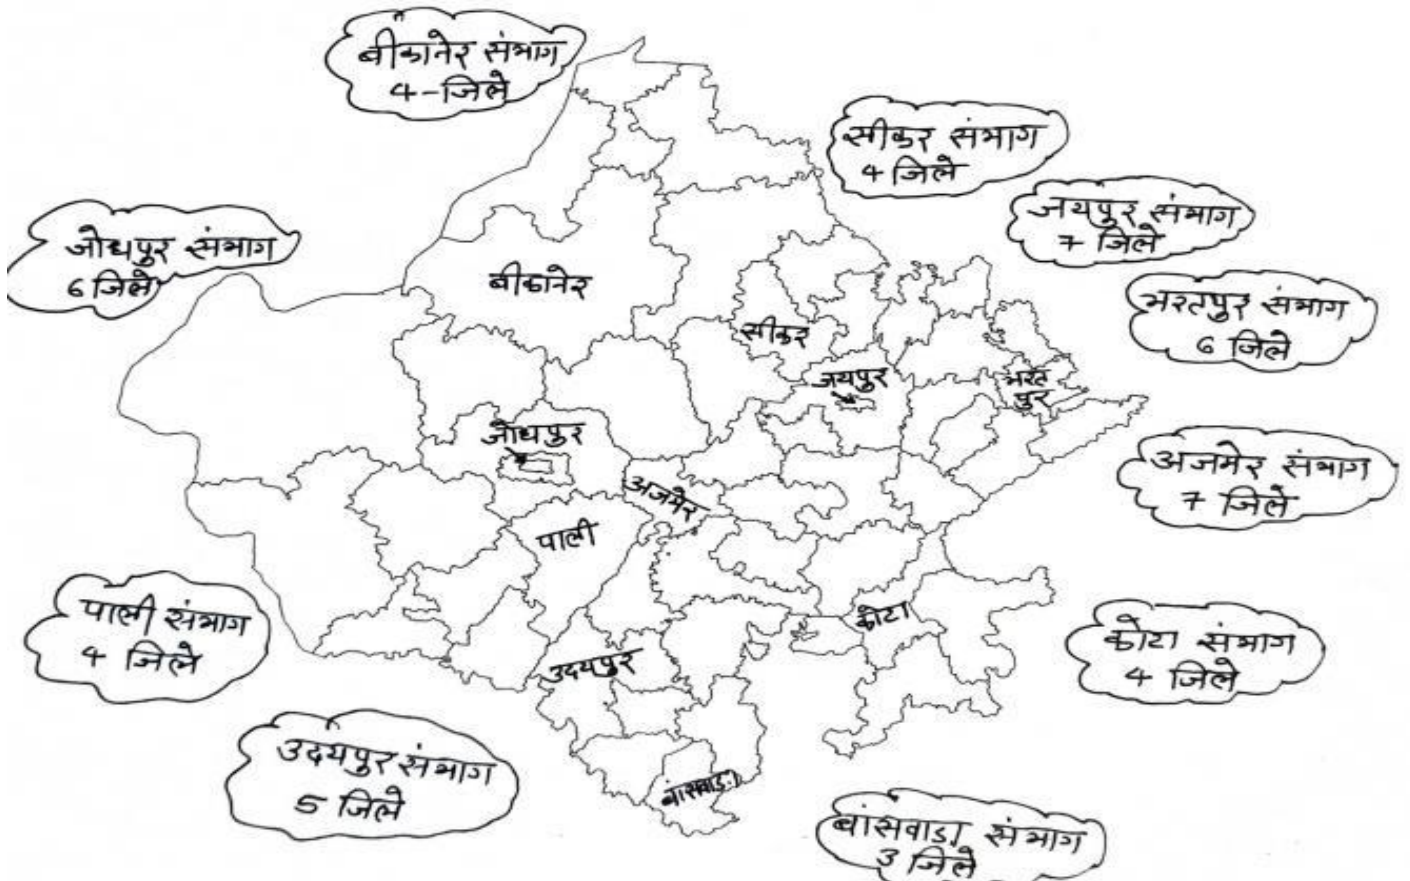 बीकानेर संभाग
4-जिले
सीकर संभाग
4 जिले
जयपुर संभाग
7 जिले
जोधपुर संभाग
6 जिले
भरतपुर संभाग
6 जिले
बीकानेर
सीकर
जयपुर
भरत
पुर
जोधपुर
अजमेर
पाली
अजमेर संभाग
7 जिले
पाली संभाग
4 जिले
कोटा
कोटा संभाग
4 जिले
उदयपुर
उदयपुर संभाग
5 जिले
बांसवाड़ा
बांसवाड़ा संभाग
3 जिले